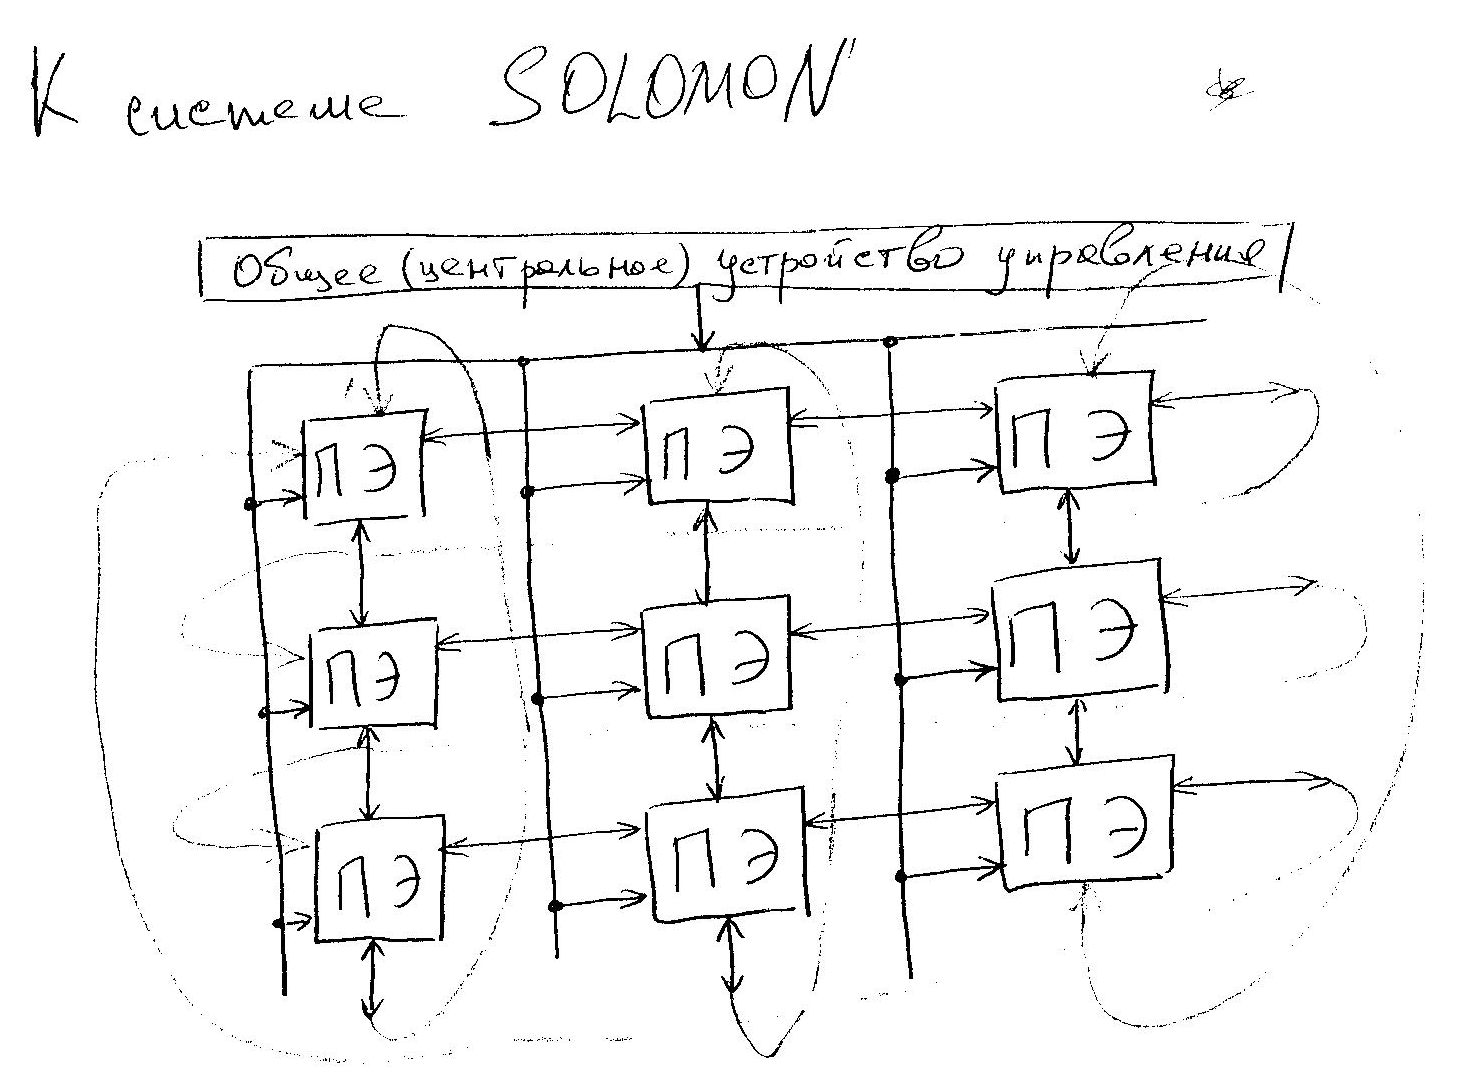 К системе SOLOMON
Общее (центральное) устройство управления
ПЭ ПЭ ПЭ
ПЭ ПЭ ПЭ
ПЭ ПЭ ПЭ